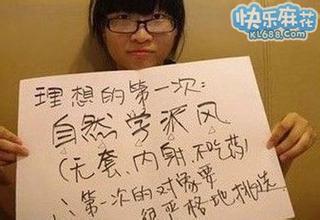 快乐麻花
KL688.Com
理想的第一次:
自然学派风
(无套、内射、不吃药)
∴第一次的对象要
很严格地挑选